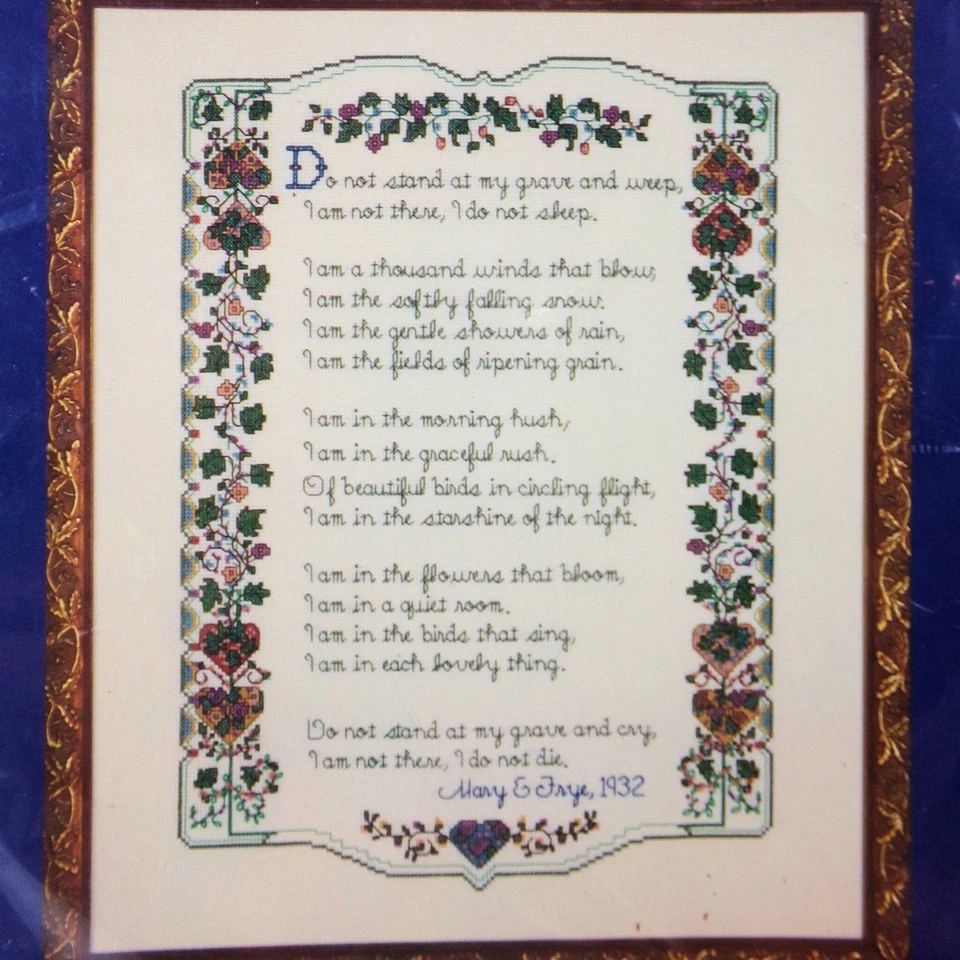 Do not stand at my grave and weep,
I am not there, I do not sleep.
I am a thousand winds that blow,
I am the softly falling snow.
I am the gentle showers of rain,
I am the fields of ripening grain.
I am in the morning hush,
I am in the graceful rush.
Of beautiful birds in circling flight,
I am in the starshine of the night.
I am in the flowers that bloom,
I am in a quiet room.
I am in the birds that sing,
I am in each lovely thing.
Do not stand at my grave and cry,
I am not there, I do not die.
Mary E Frye, 1932